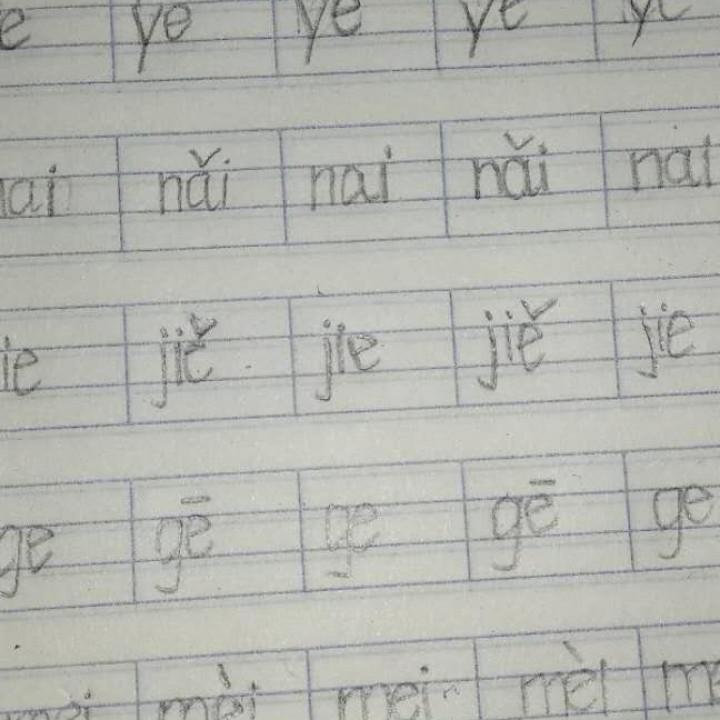 ye ye ye ye
nǎi nai nǎi nai
jiě jie jiě jie
ge gē ge gē ge
mèi mei mèi